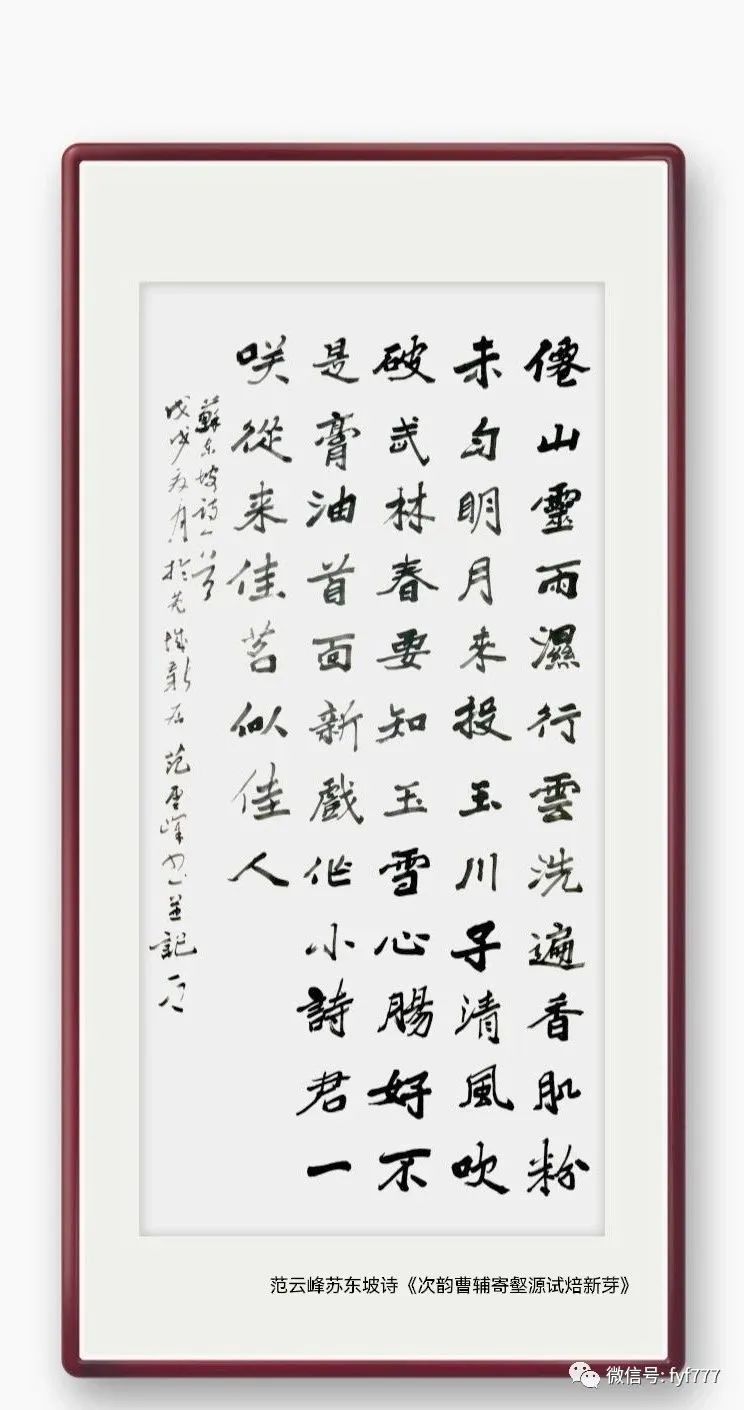 僊山靈雨濕行雲洗遍香肌粉
未匀眀月来投玉川子清風吹
破武林春要知玉雪心腸好不
是膏油首面新戲作小詩君一
咲從来佳茗似佳人
蘇东坡詩一首
戊戌月於芜城新居范雲峰书並記
范云峰苏东坡诗《次韵曹辅寄壑源试焙新芽》
微信号: fyf777